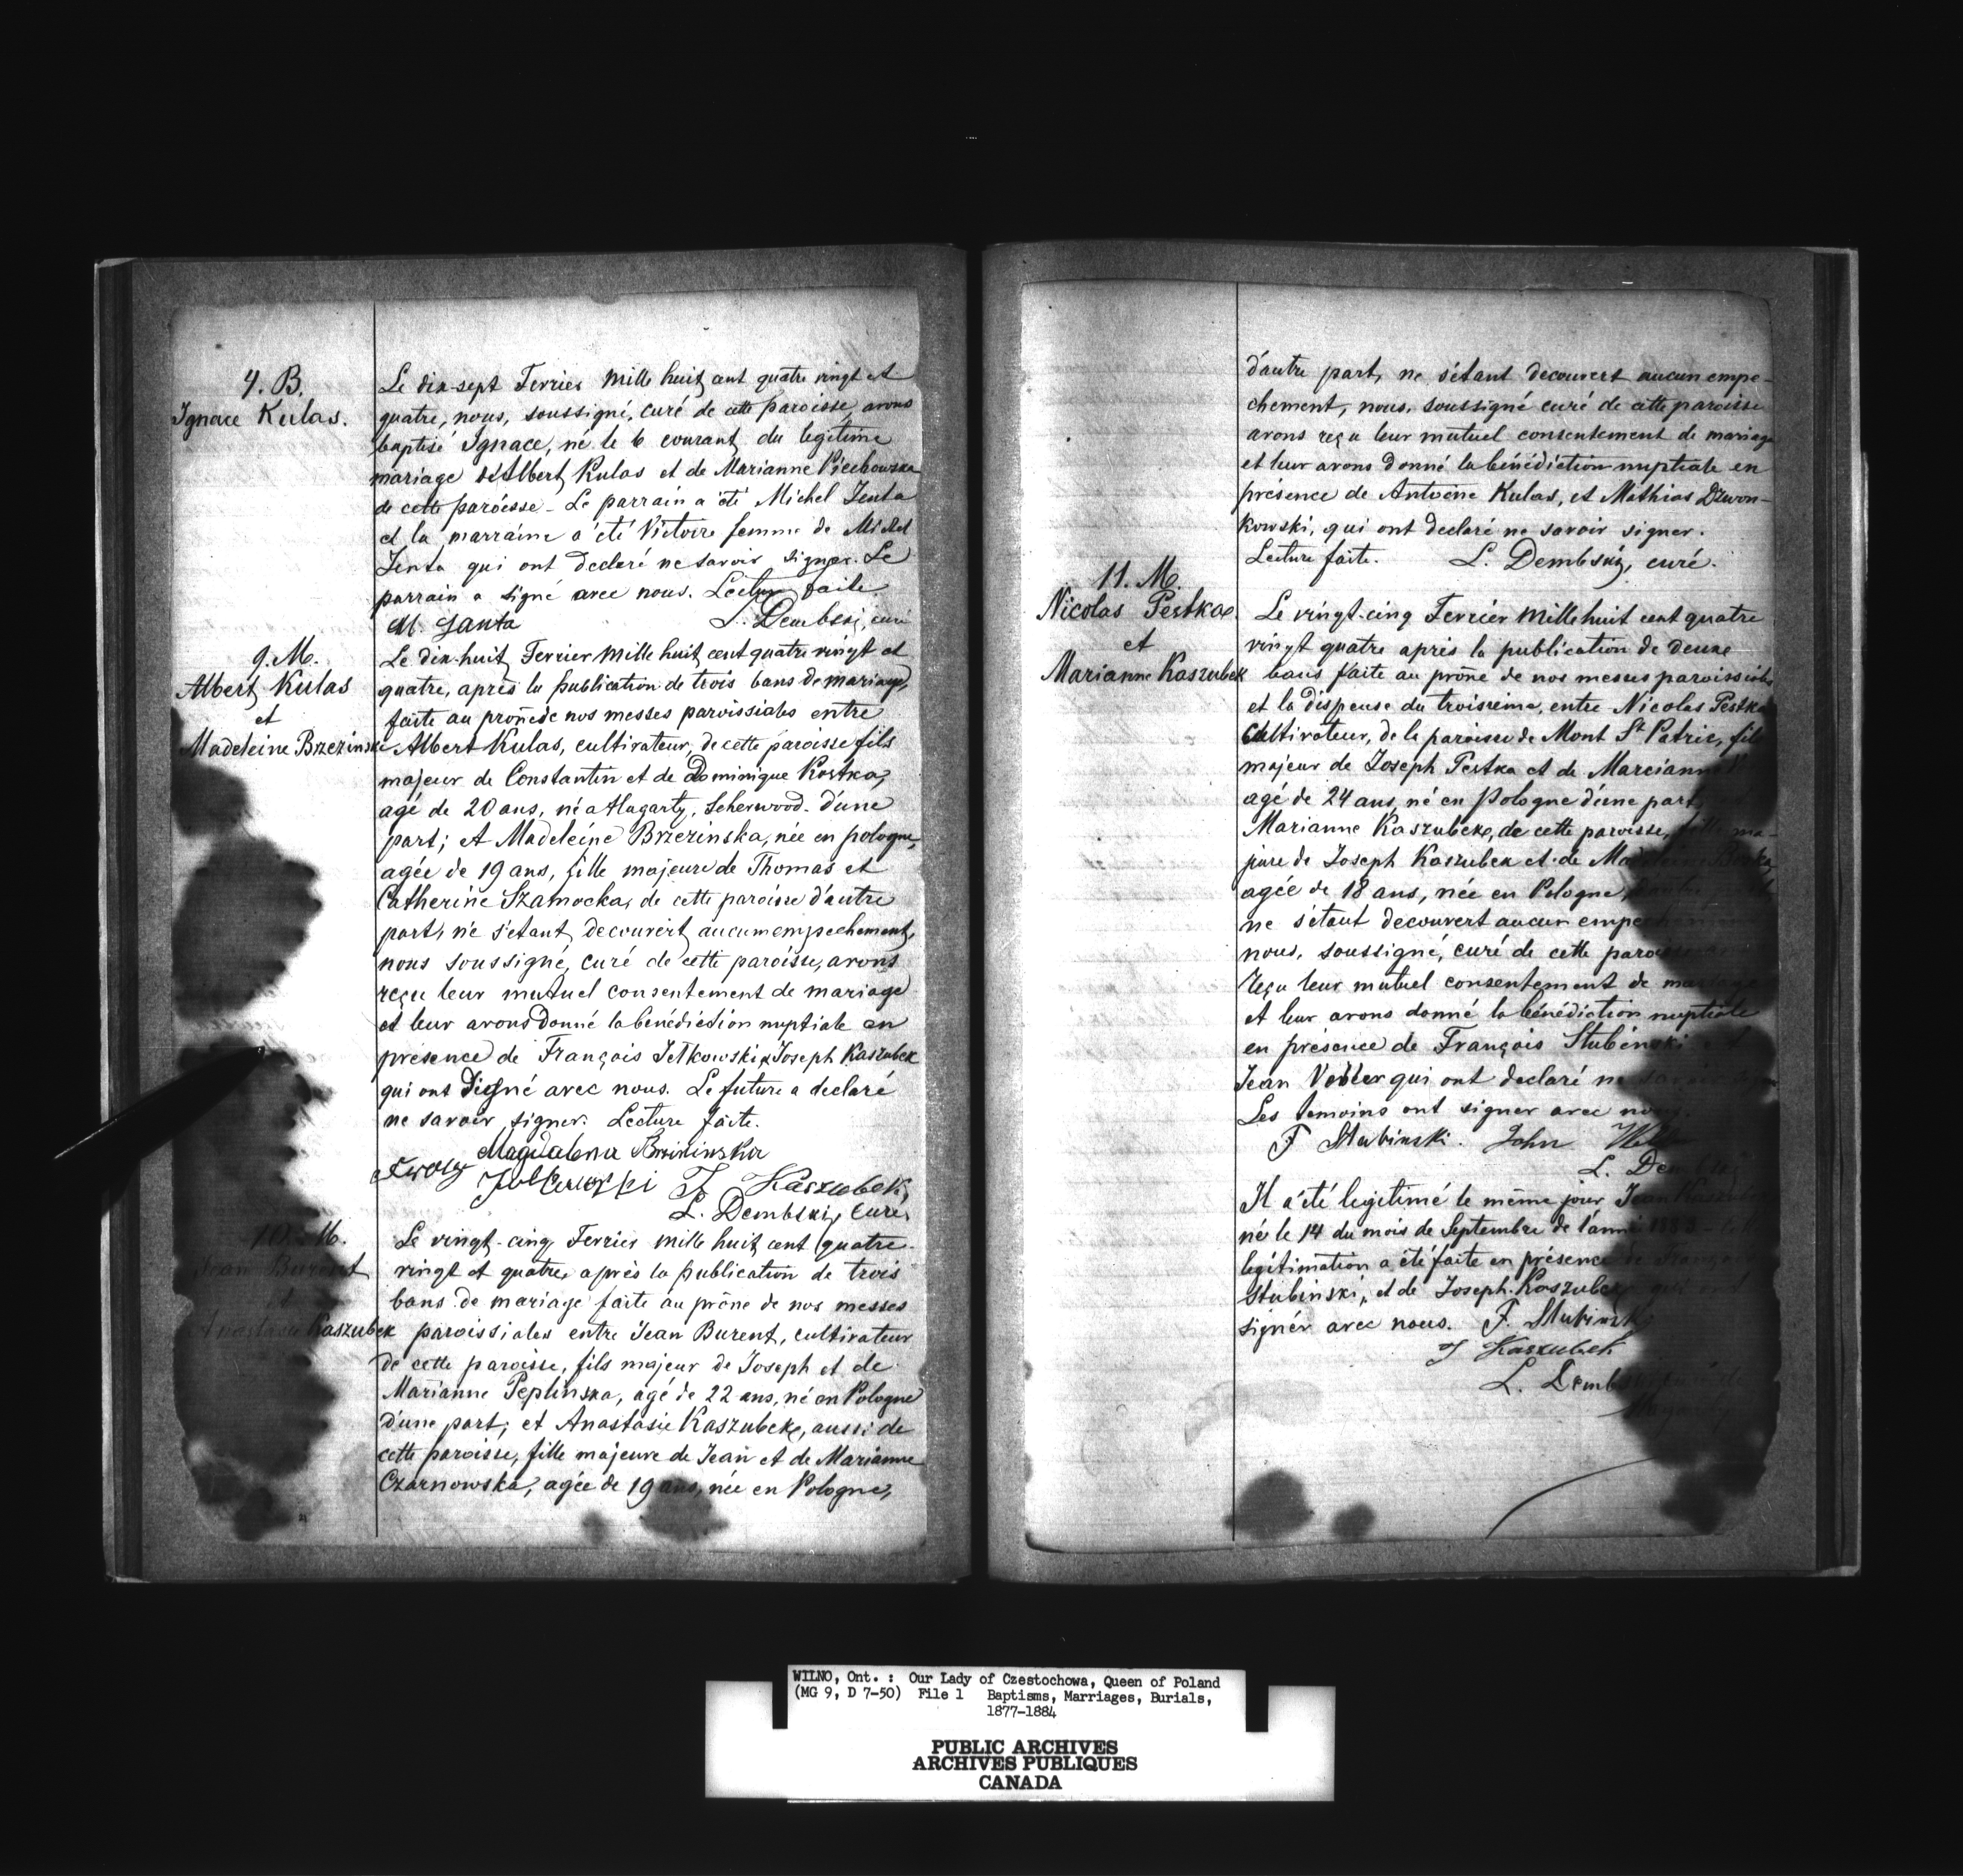 4. B.
Ignace Kulas.
Le dix-sept Fevrier mille huit cent quatre vingt et
quatre, nous, soussigné, curé de cette paroisse avons
baptisé Ignace, né le 6 courant du legitime
mariage d'Albert Kulas et de Marianne Piechowska
de cette paroisse - Le parrain a été Michel Jenta
et la marraine a été Victoire femme de Michel
Jenta qui ont declaré ne savoir signer. Le
parrain a signé avec nous. Lecture faite
M. Janta L. Dembski, curé
9. M.
Albert Kulas
et
Madeleine Brzezinska
Le dix-huit Fevrier mille huit cent quatre vingt et
quatre, après la publication de trois bans de mariage,
faite au prône de nos messes paroissiales entre
Albert Kulas, cultivateur, de cette paroisse fils
majeur de Constantin et de Dominique Kostka,
agé de 20 ans, né a Hagarty, Scherwood. d'une
part; et Madeleine Brzezinska, née en pologne,
agée de 19 ans, fille majeure de Thomas et
Catherine Szamocka, de cette paroisse d'autre
part, ne s'etant decouvert aucun empechement,
nous soussigné, curé de cette paroisse, avons
reçu leur mutuel consentement de mariage
et leur avons donné la bénédiction nuptiale en
présence de François Jetkowski & Joseph Kaszubek
qui ont signé avec nous. Le future a declaré
ne savoir signer. Lecture faite.
Magdalena
J Kaszubek
L. Dembski, curé
10. M.
Jean Burent
et
Anastasie Kaszubek
Le vingt-cinq Fevrier mille huit cent quatre
vingt et quatre, après la publication de trois
bans de mariage faite au prône de nos messes
paroissiales entre Jean Burent, cultivateur
de cette paroisse, fils majeur de Joseph et de
Marianne Peplinska, agé de 22 ans, né en Pologne
d'une part; et Anastasie Kaszubek, aussi de
cette paroisse, fille majeure de Jean et de Marianne
Czarnowska, agée de 19 ans, née en Pologne,
d'autre part, ne s'étant decouvert aucun empe-
chement, nous, soussigné curé de cette paroisse
avons reçu leur mutuel consentement de mariage
et leur avons donné la bénédiction nuptiale en
présence de Antoine Kulas, et Mathias Dzwon-
kowski, qui ont declaré ne savoir signer.
Lecture faite. L. Dembski, curé.
11. M.
Nicolas Pestka
et
Marianne Kaszubek
Le vingt-cinq Fevrier mille huit cent quatre
vingt quatre après la publication de deux
bans faite au prône de nos messes paroissiales
et la dispense du troisieme, entre Nicolas Pestka
Cultivateur, de la paroisse de Mont St Patric, fils
majeur de Joseph Pestka et de Marcianna
agé de 24 ans, né en Pologne d'une part,
Marianne Kaszubek, de cette paroisse, fille ma-
jeure de Joseph Kaszubek et de
agée de 18 ans, née en Pologne,
ne s'étant decouvert aucun
nous, soussigné, curé de cette paroisse
reçu leur mutuel consentement de mariage
et leur avons donné la bénédiction nuptiale
en présence de François Stubinski
Jean qui ont declaré ne savoir
Les temoins ont signer avec nous.
F Stubinski. John
L. Dembski
Il a été legitimé le même jour Jean
né le 14 du mois de Septembre de l'année 1883
legitimation a été faite en présence de François
Stubinski, et de Joseph Kaszubek
signér avec nous. F. Stubinski
J Kaszubek
L. Dembski
WILNO, Ont. : Our Lady of Czestochowa, Queen of Poland
(MG 9, D 7-50) File 1 Baptisms, Marriages, Burials,
1877-1884
PUBLIC ARCHIVES
ARCHIVES PUBLIQUES
CANADA